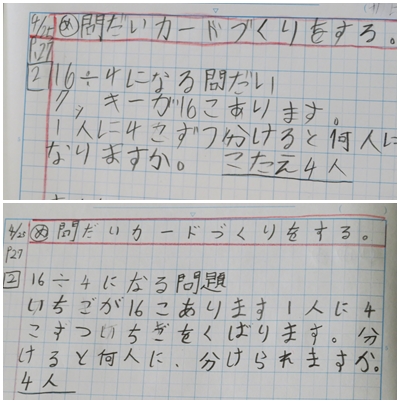 4/25 め 問だいカードづくりをする。
P27
2 16÷4になる問だい
クッキーが16こあります。
1人に4こずつ分けると何人に
なりますか。 こたえ4人
4/25 め 問だいカードづくりをする。
P27
2 16÷4になる問題
いちごが16こあります1人に4
こずついちごをくばります。分
けると何人に、分けられますか。
4人